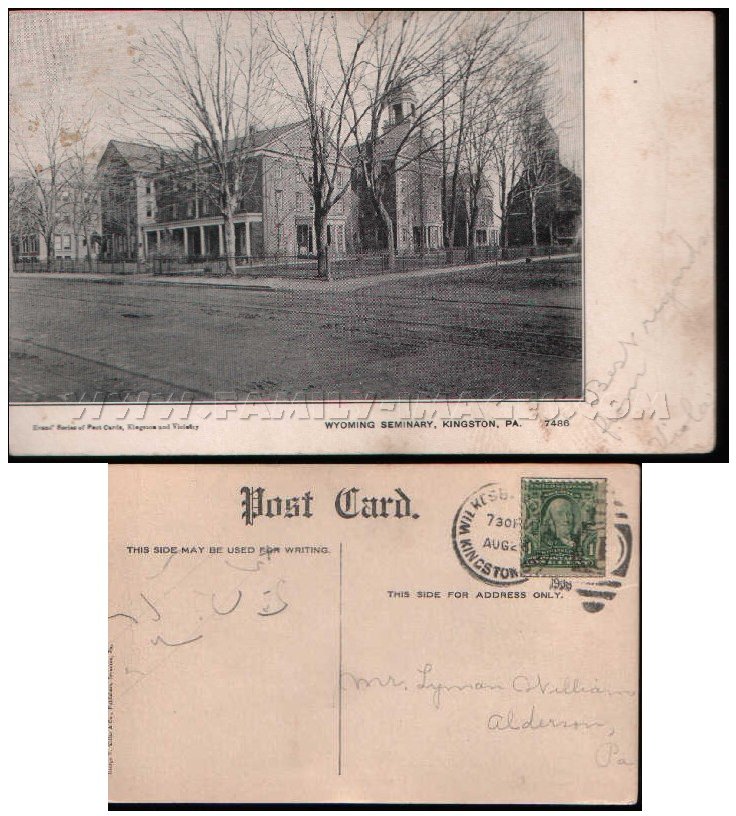 Best regards
from
Viola
WWW.FAMILY-IMAGES.COM
Evans' Series of Post Cards, Kingston and Vicinity
WYOMING SEMINARY, KINGSTON, PA. 7486
Post Card.
THIS SIDE MAY BE USED FOR WRITING.
THIS SIDE FOR ADDRESS ONLY.
WILKESB
730P
AUG2
1908
KINGSTON
1 1
Mr. Lyman Williams
Alderson,
Pa